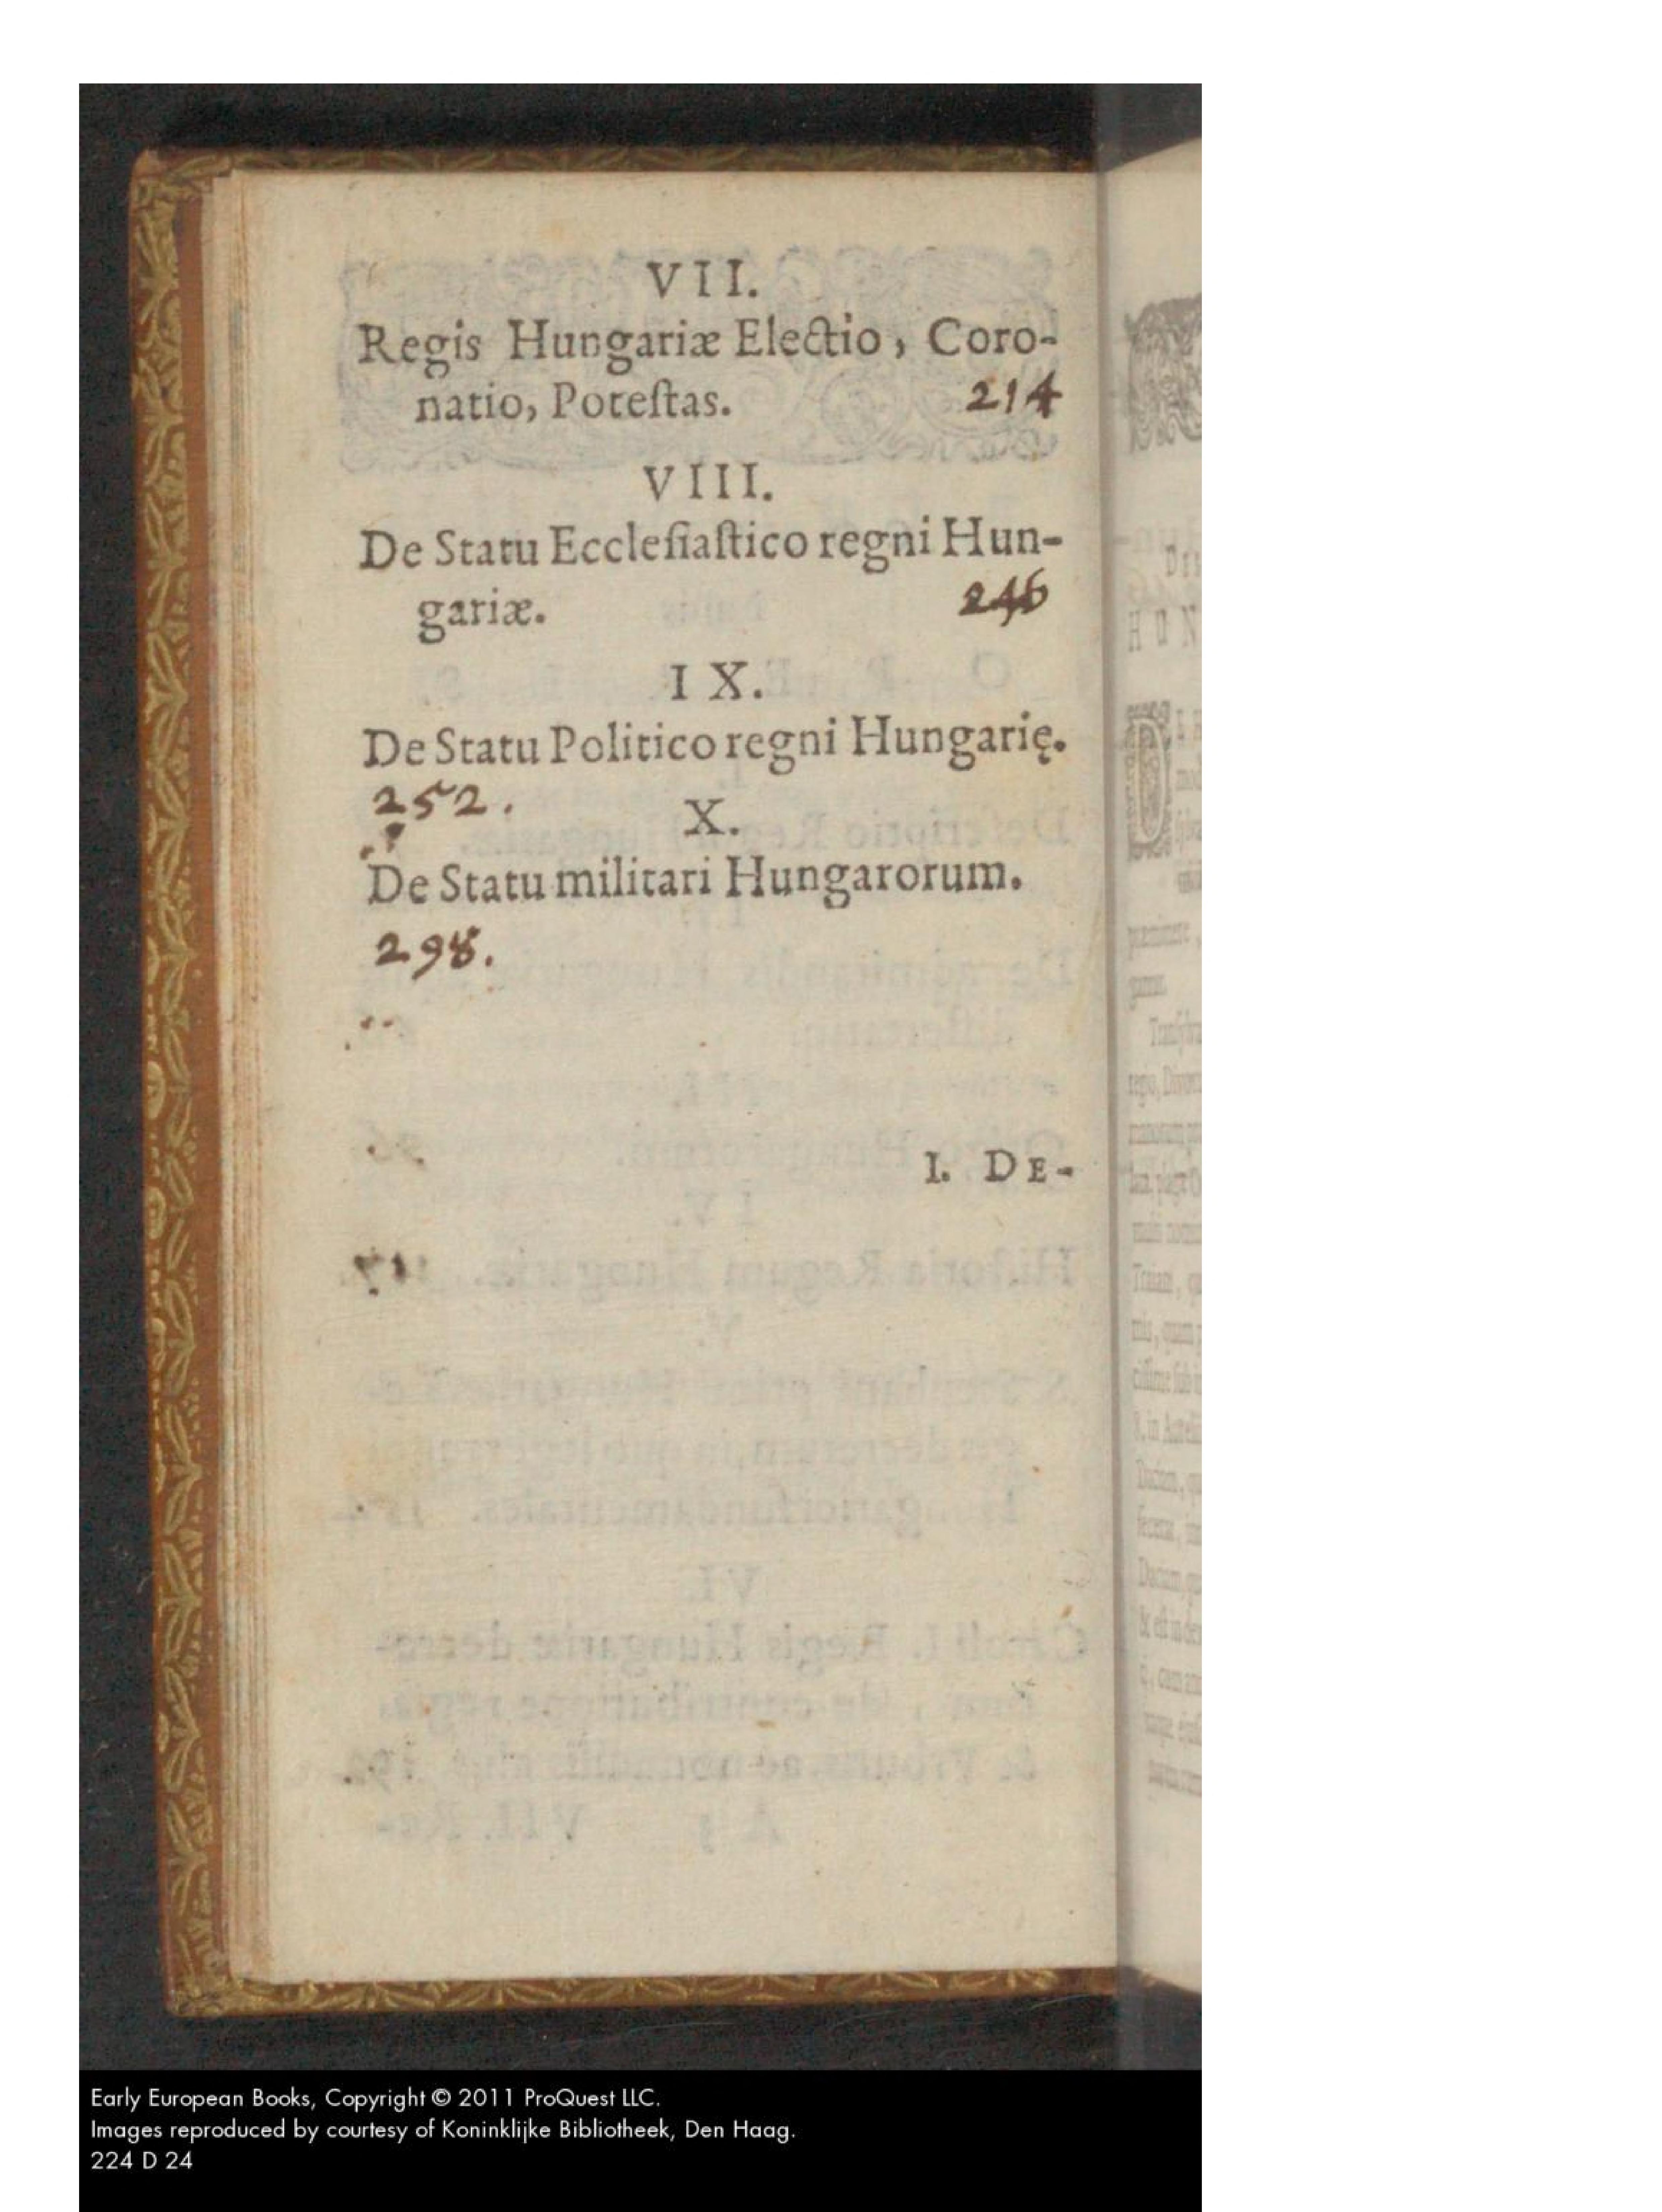 VII.
Regis Hungariæ Electio, Coro-
natio, Poteſtas. 214
VIII.
De Statu Eccleſiaſtico regni Hun-
gariæ. 246
IX.
De Statu Politico regni Hungarię.
252.
X.
De Statu militari Hungarorum.
298.
I. DE-
Early European Books, Copyright © 2011 ProQuest LLC.
Images reproduced by courtesy of Koninklijke Bibliotheek, Den Haag.
224 D 24